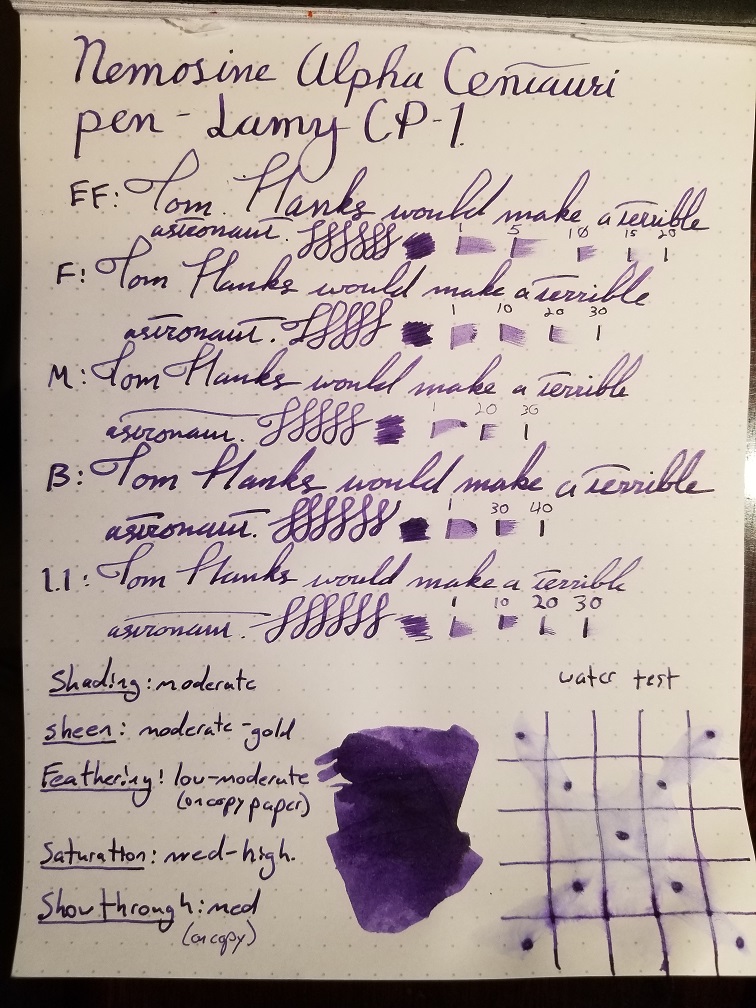 Nemosine Alpha Centauri
pen - Lamy CP-1
EF: Tom Hanks would make a terrible
astronaut. 1 5 10 15 20
F: Tom Hanks would make a terrible
astronaut. 1 10 20 30
M: Tom Hanks would make a terrible
astronaut. 1 20 30
B: Tom Hanks would make a terrible
astronaut. 1 30 40
1.1: Tom Hanks would make a terrible
astronaut. 1 10 20 30
Shading: moderate
water test
sheen: moderate-gold
Feathering: low-moderate
(on copy paper)
Saturation: med-high.
Show through: med
(on copy)